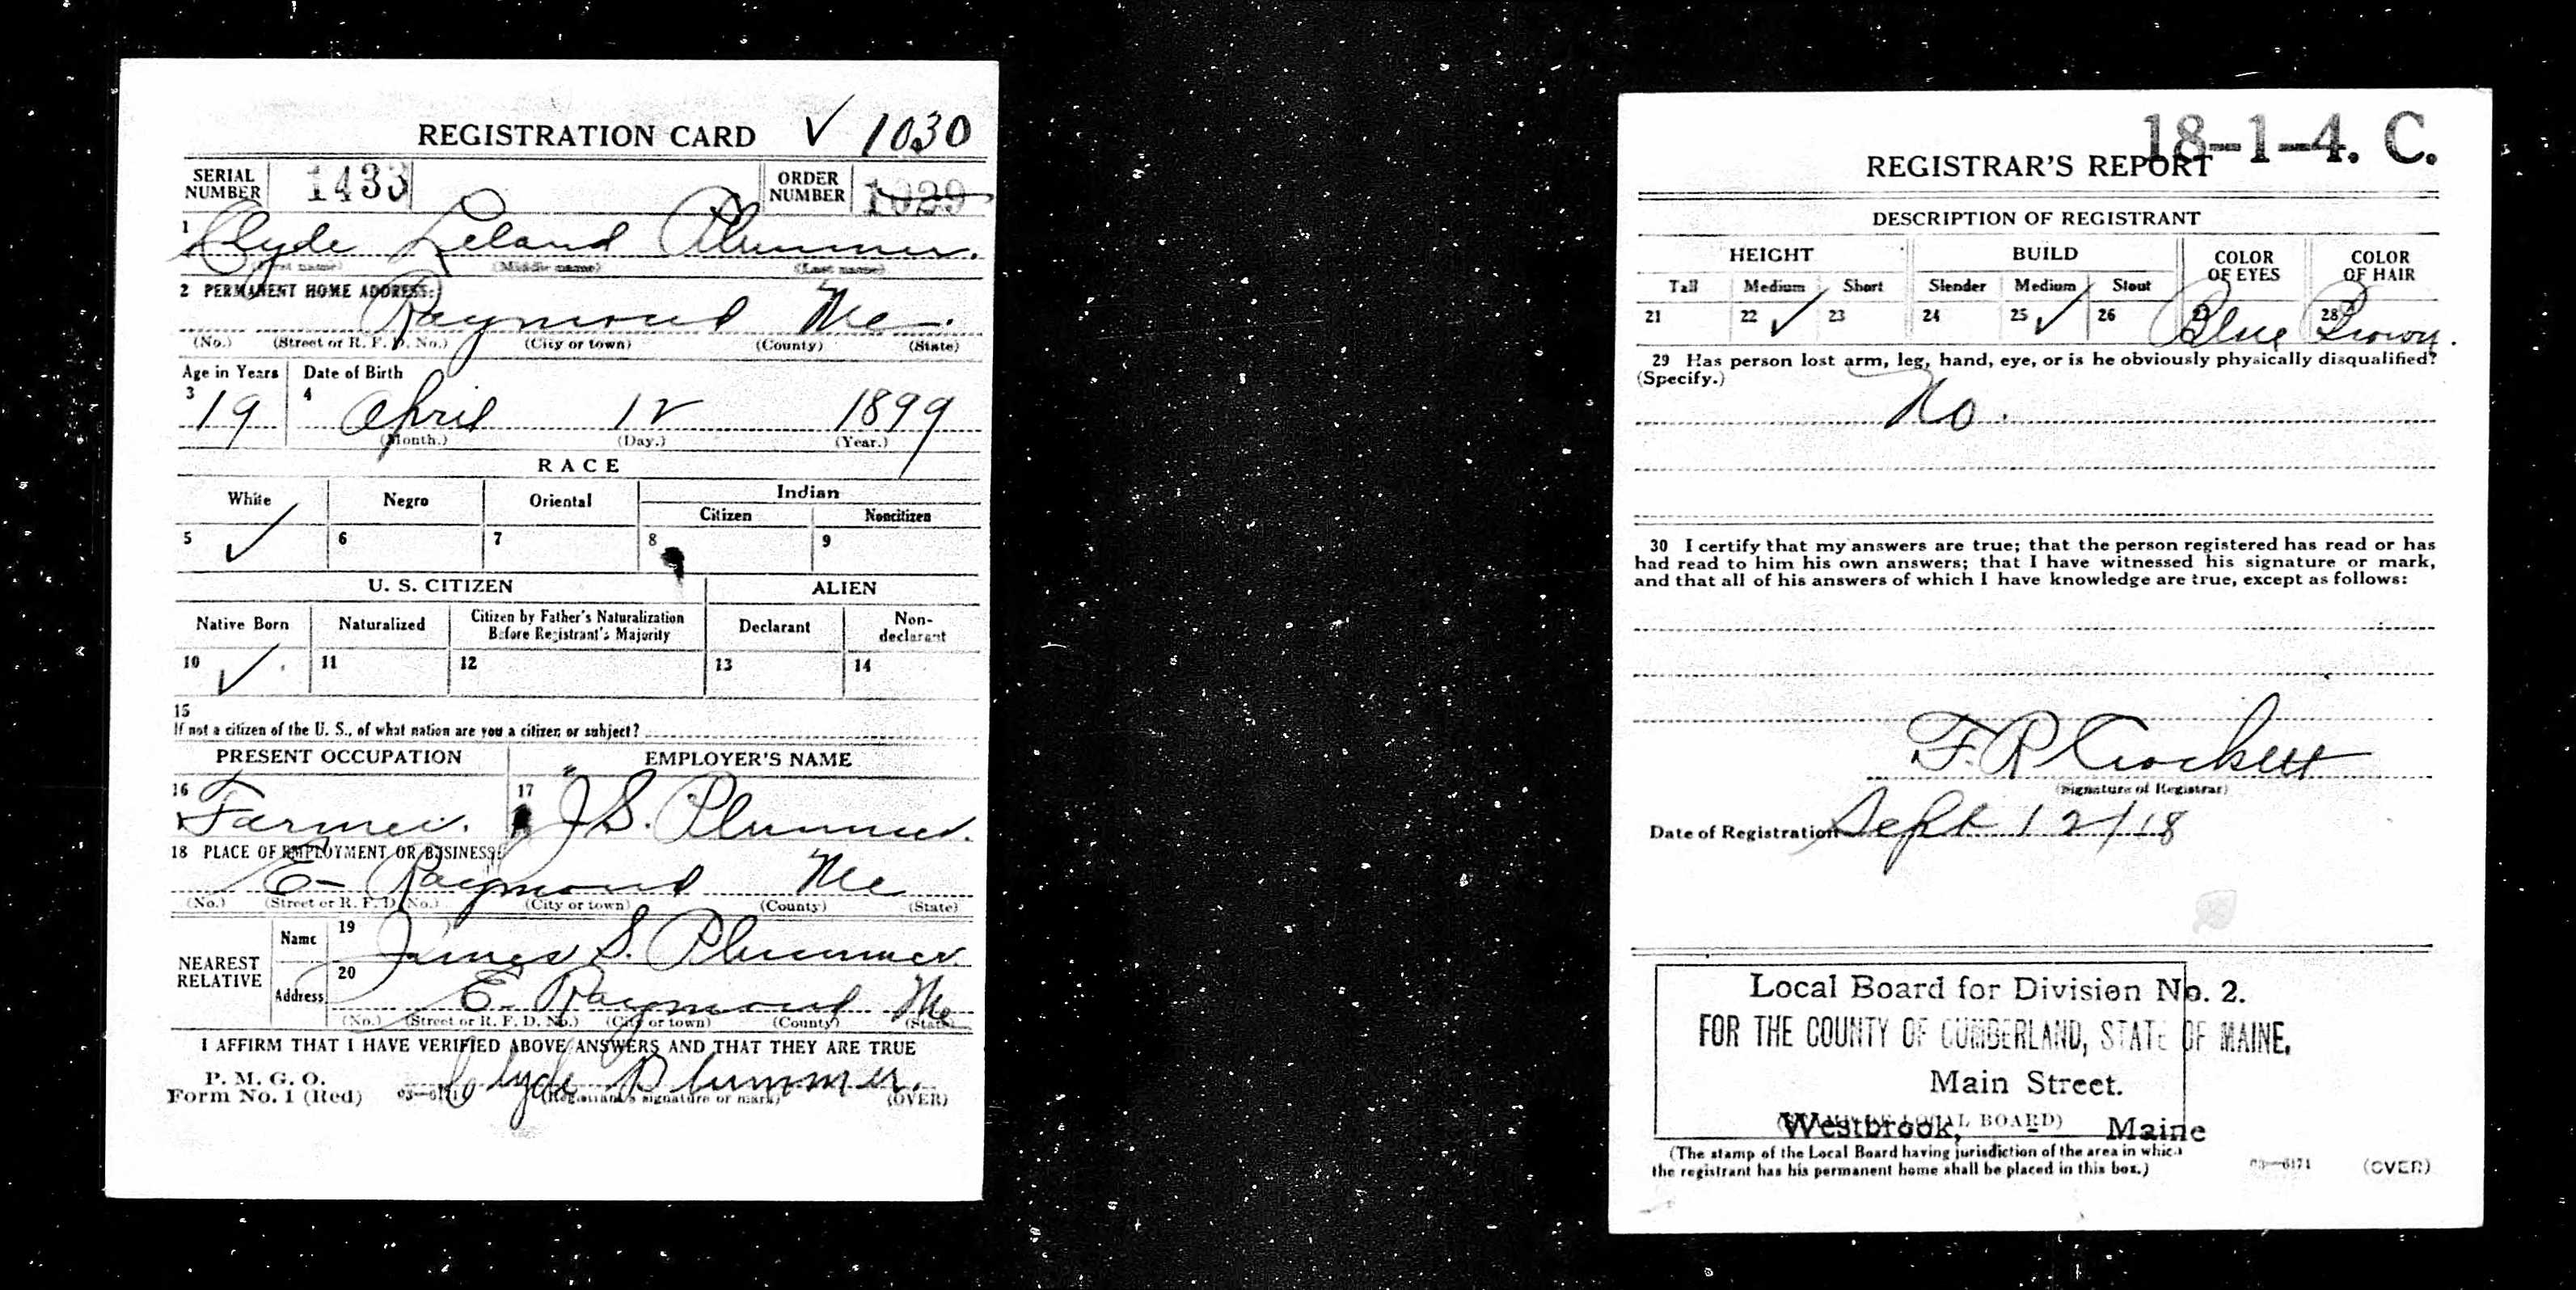 REGISTRATION CARD ✓ 1030
SERIAL NUMBER 1433 ORDER NUMBER 1029
1 Clyde Leland Plummer.
(First name) (Middle name) (Last name)
2 PERMANENT HOME ADDRESS:
Raymond Me.
(No.) (Street or R. F. D. No.) (City or town) (County) (State)
Age in Years Date of Birth
3 19 4 April 12 1899
(Month.) (Day.) (Year.)
RACE
White Negro Oriental Indian
Citizen Noncitizen
5 ✓ 6 7 8 9
U. S. CITIZEN ALIEN
Native Born Naturalized Citizen by Father's Naturalization Before Registrant's Majority Declarant Non-declarant
10 ✓ 11 12 13 14
15
If not a citizen of the U. S., of what nation are you a citizen or subject?
PRESENT OCCUPATION EMPLOYER'S NAME
16 Farmer. 17 J S. Plummer.
18 PLACE OF EMPLOYMENT OR BUSINESS:
E- Raymond Me
(No.) (Street or R. F. D. No.) (City or town) (County) (State)
NEAREST RELATIVE
Name 19 James S. Plummer
Address 20 E. Raymond Me
(No.) (Street or R. F. D. No.) (City or town) (County) (State)
I AFFIRM THAT I HAVE VERIFIED ABOVE ANSWERS AND THAT THEY ARE TRUE
P. M. G. O.
Form No. 1 (Red) Clyde Plummer.
(Registrant's signature or mark) (OVER)
18-1-4. C.
REGISTRAR'S REPORT
DESCRIPTION OF REGISTRANT
HEIGHT BUILD COLOR OF EYES COLOR OF HAIR
Tall Medium Short Slender Medium Stout
21 22 ✓ 23 24 25 ✓ 26 27 Blue 28 Brown.
29 Has person lost arm, leg, hand, eye, or is he obviously physically disqualified?
(Specify.)
No.
30 I certify that my answers are true; that the person registered has read or has
had read to him his own answers; that I have witnessed his signature or mark,
and that all of his answers of which I have knowledge are true, except as follows:
F. R Crockett
(Signature of Registrar)
Date of Registration Sept 12/18
Local Board for Division No. 2.
FOR THE COUNTY OF CUMBERLAND, STATE OF MAINE.
Main Street.
(STAMP OF LOCAL BOARD)
Westbrook, - Maine
(The stamp of the Local Board having jurisdiction of the area in which
the registrant has his permanent home shall be placed in this box.)
03—6171 (OVER)